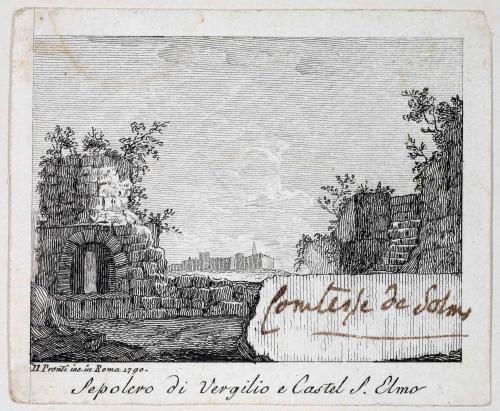 Comtesse de Solms
D. Pronti inc. in Roma 1790.
Sepolcro di Vergilio e Castel S. Elmo